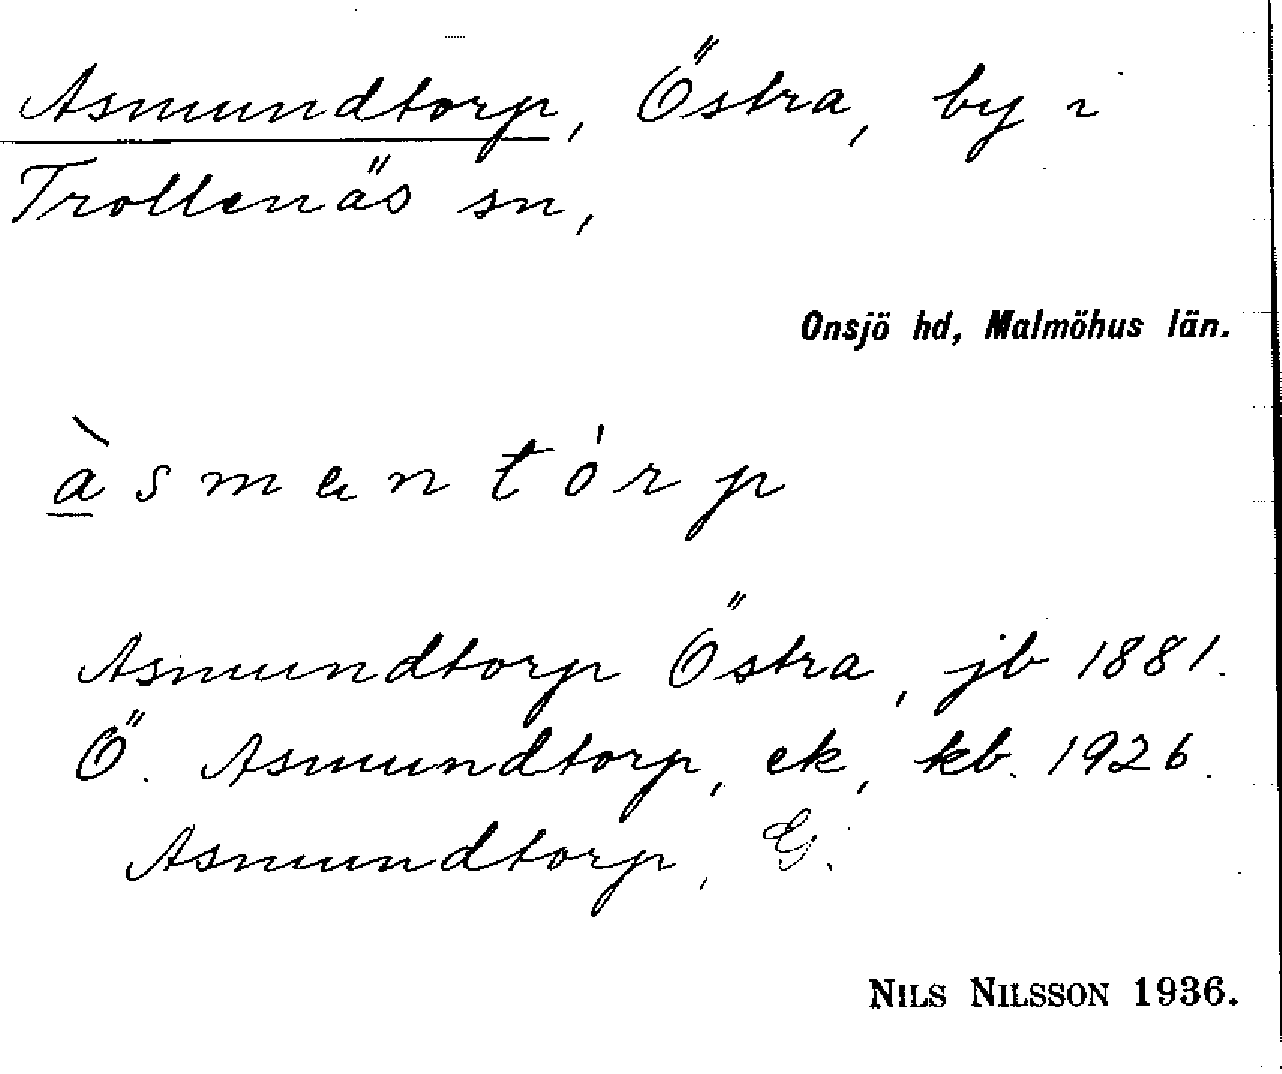 Asmundtorp, Östra, by i
Trollenäs sn,
Onsjö hd, Malmöhus län.
àsmantórp
Asmundtorp Östra, jb 1881.
Ö. Asmundtorp, ek, kb. 1926.
Asmundtorp, G.
NILS NILSSON 1936.